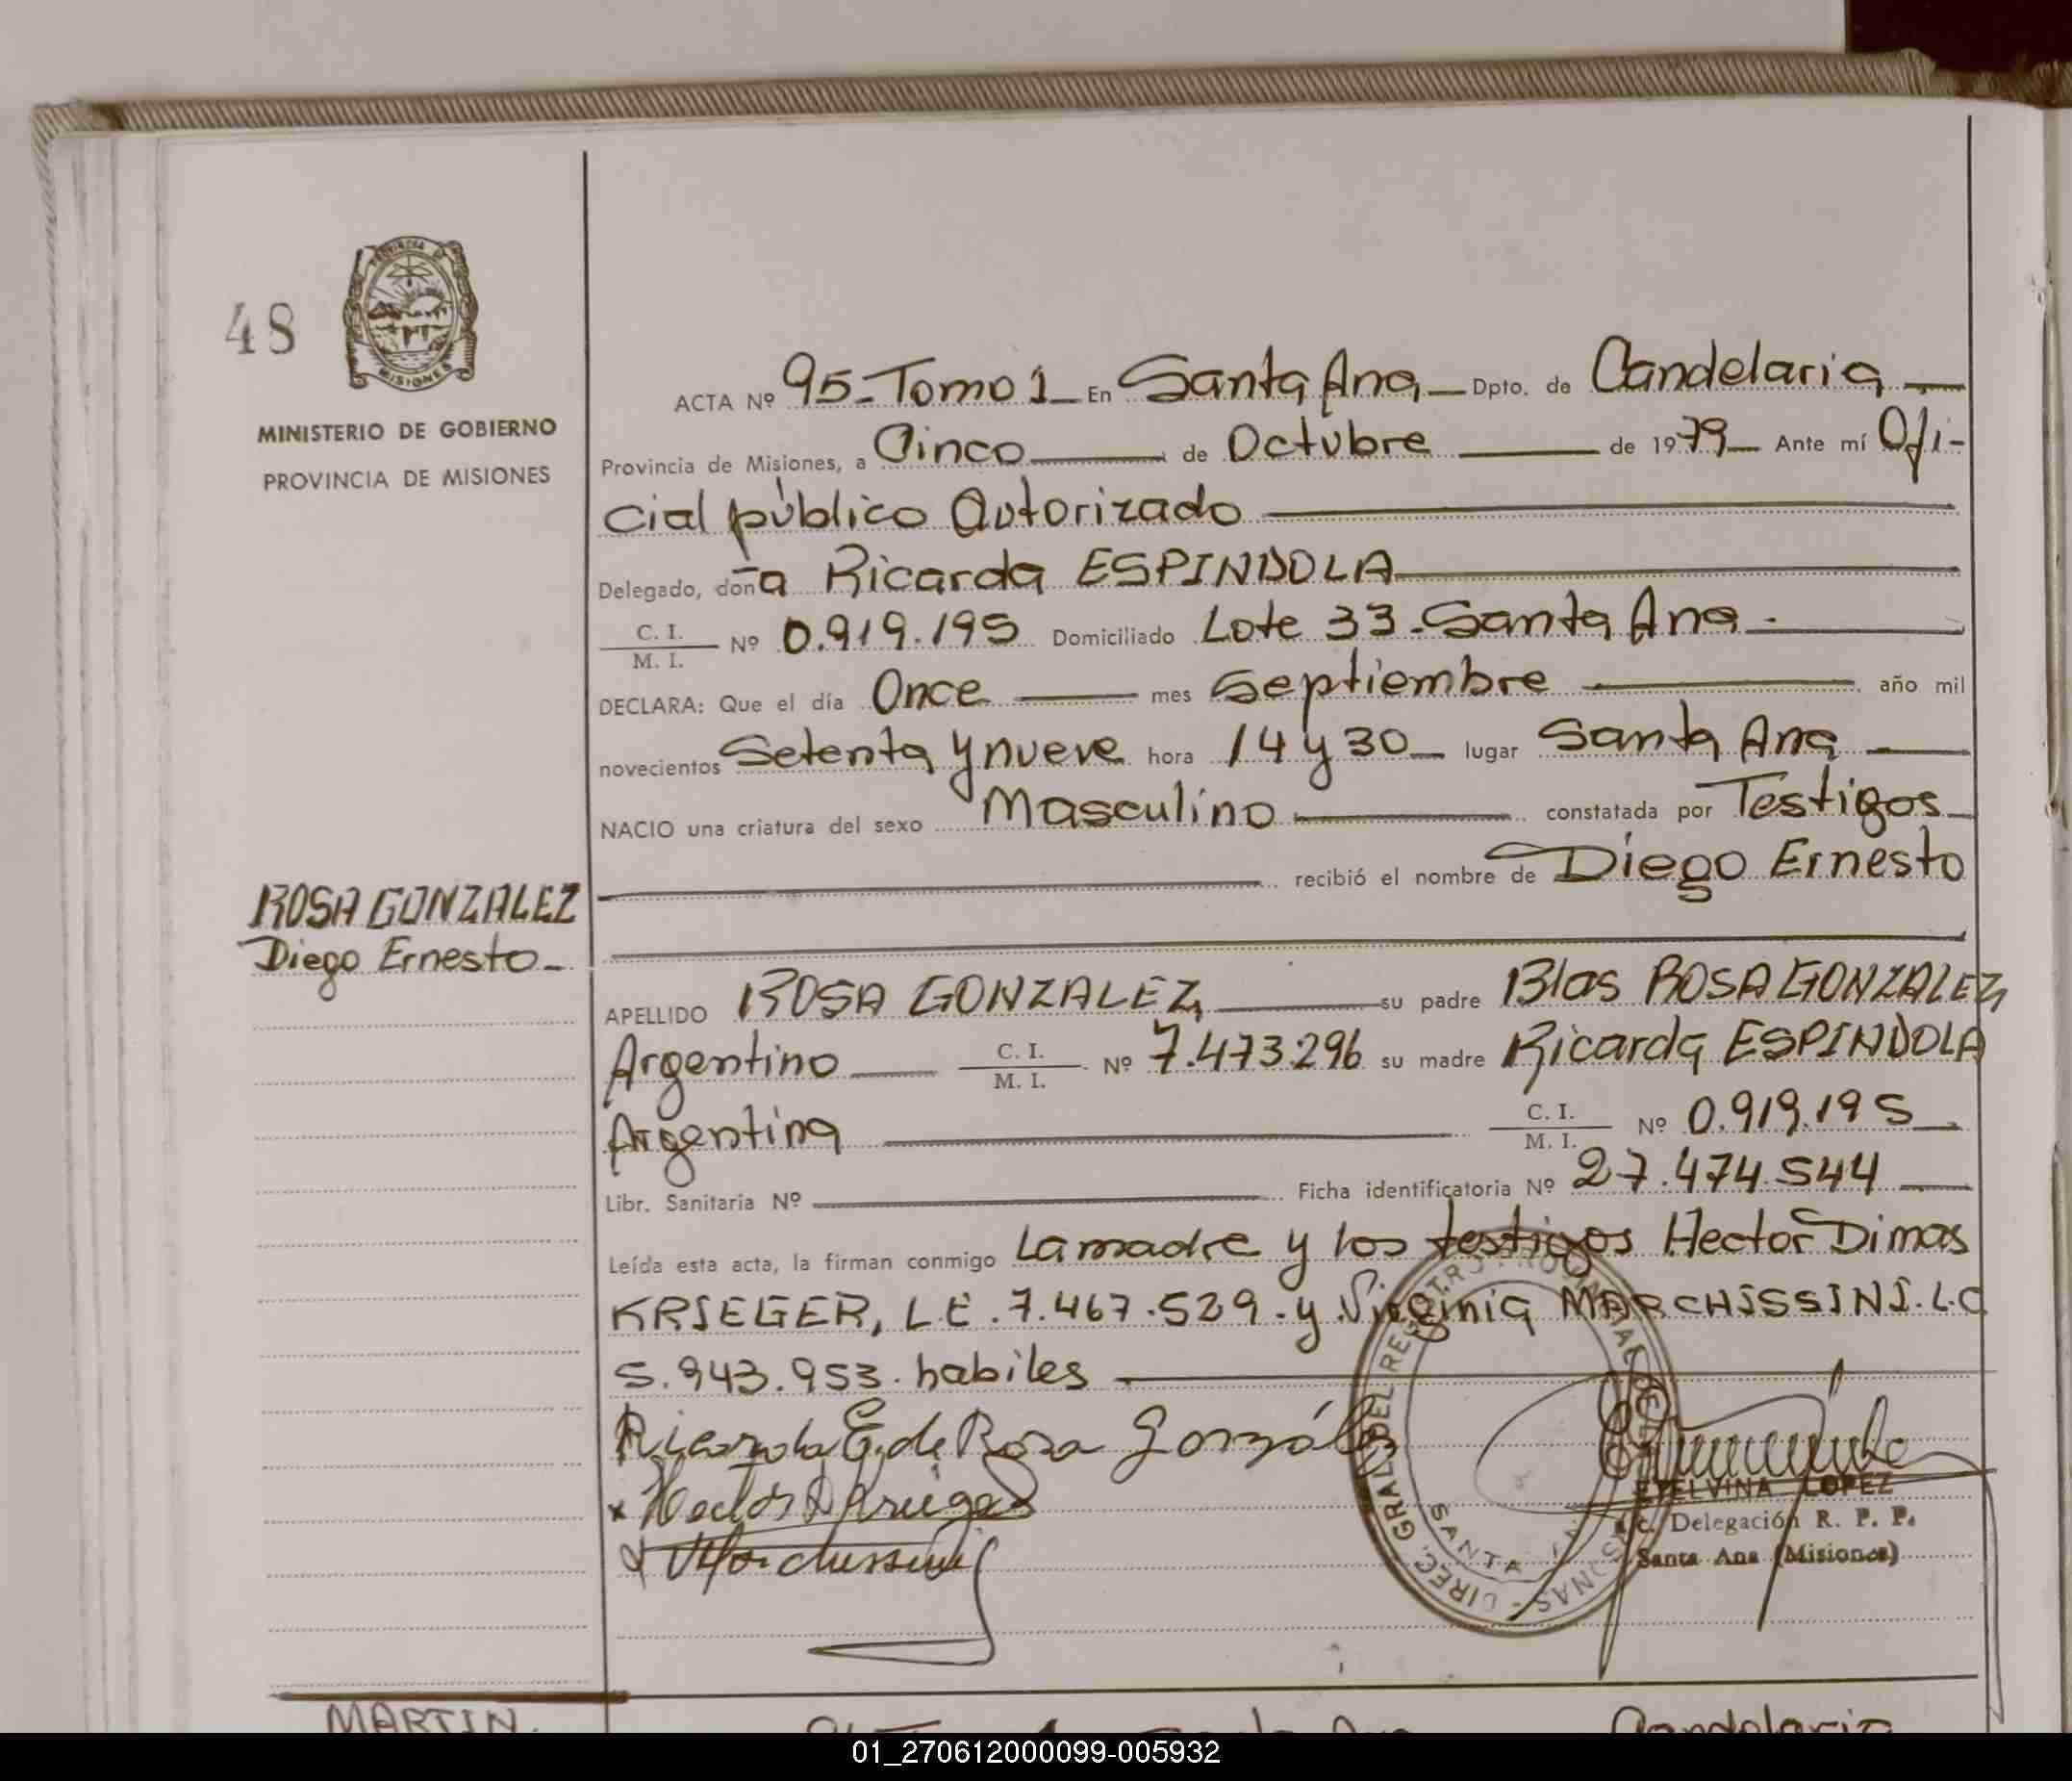 48
PROVINCIA DE
MISIONES
MINISTERIO DE GOBIERNO
PROVINCIA DE MISIONES
ACTA Nº 95-Tomo 1 En Santa Ana Dpto. de Candelaria
Provincia de Misiones, a Cinco de Octubre de 1979 Ante mí Ofi-
cial público Autorizado
Delegado, doña Ricarda ESPINDOLA
C. I. / M. I. Nº 0.919.195 Domiciliado Lote 33-Santa Ana.
DECLARA: Que el día Once mes Septiembre año mil
novecientos Setenta y nueve hora 14 y 30 lugar Santa Ana
NACIO una criatura del sexo Masculino constatada por Testigos
recibió el nombre de Diego Ernesto
ROSA GONZALEZ
Diego Ernesto
APELLIDO ROSA GONZALEZ, su padre Blas ROSA GONZALEZ,
Argentino C. I. / M. I. Nº 7.473.296 su madre Ricarda ESPINDOLA
Argentina C. I. / M. I. Nº 0.919.195
Libr. Sanitaria Nº Ficha identificatoria Nº 27.474.544
Leída esta acta, la firman conmigo La madre y los testigos Hector Dimas
KRIEGER, L.E. 7.467.529. y Virginia MARCHISSINI. L.C
5.943.953. habiles
Ricarda E. de Rosa González
ETELVINA LOPEZ
Delegación R. P. P.
Santa Ana (Misiones)
DIREC. GRAL. DEL REGISTRO PROVINCIAL DE LAS PERSONAS
SANTA ANA
MARTIN
Candelaria
01_270612000099-005932